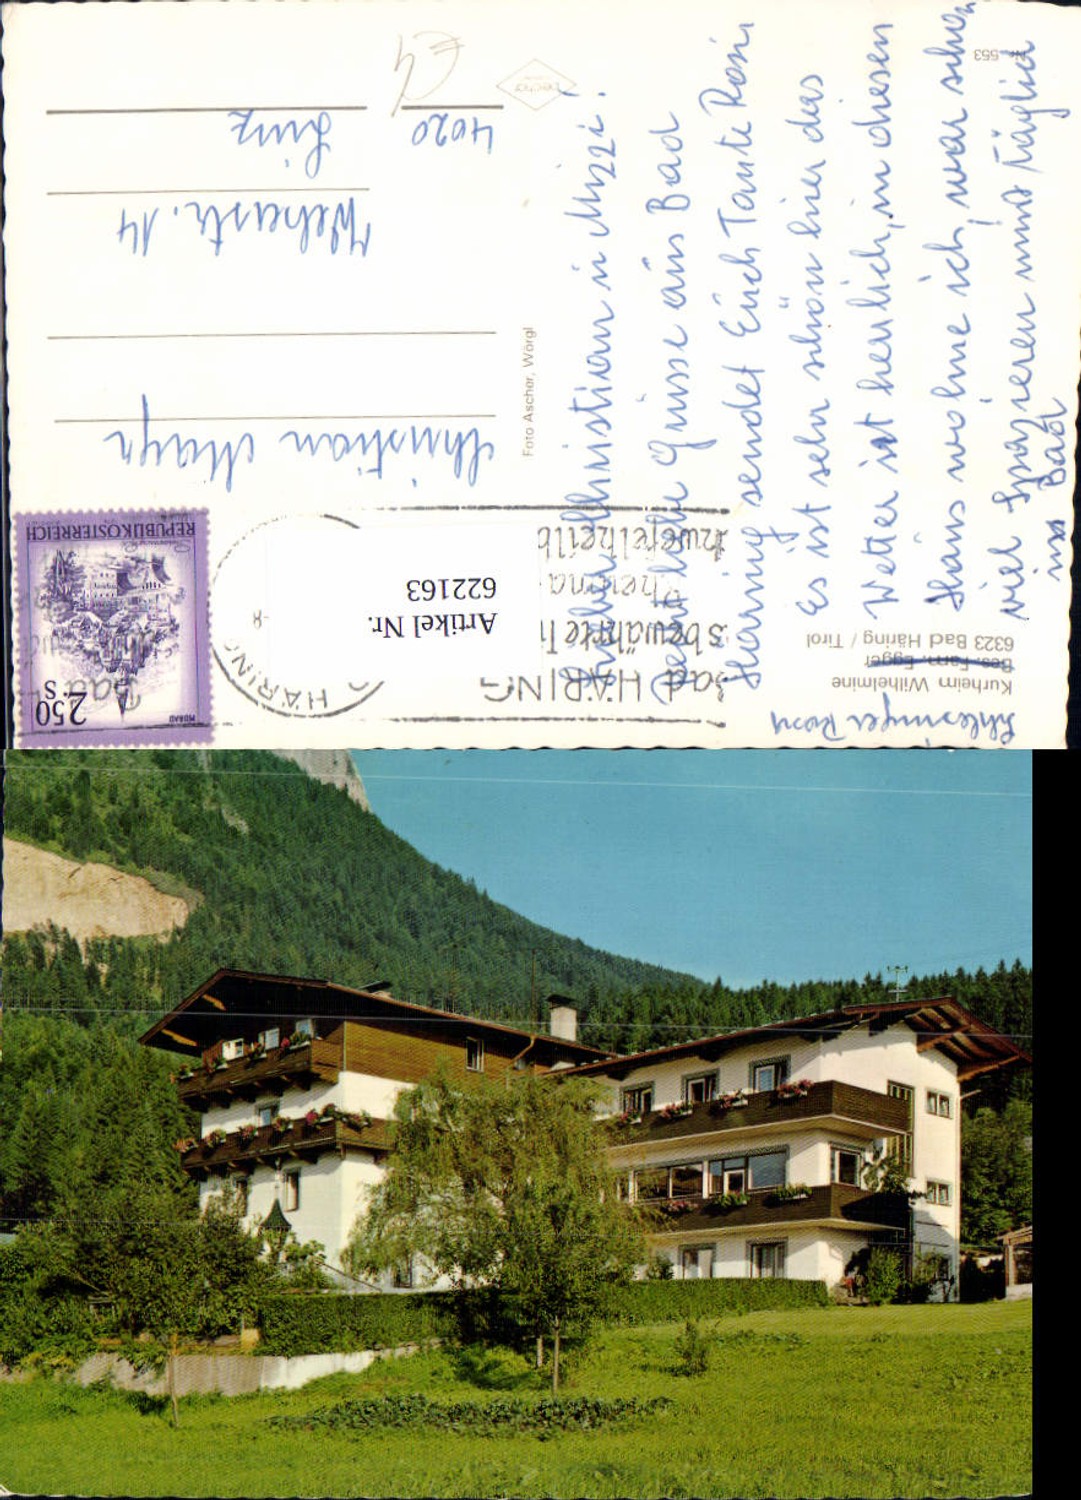 Nr. 553
Kurheim Wilhelmine
Bes. Fam. Egger
6323 Bad Häring / Tirol
Schlesinger Rosy
Lieber Christian u Mizzi!
Herzliche Grüsse aus Bad
Häring sendet Euch Tante Rosi
Es ist sehr schön hier das
Wetter ist herrlich, in diesen
Haus wohne ich, war schon
viel Spazieren und täglich
im Bad
Foto Ascher, Wörgl
Bad HÄRING
s bewährte
therma
chwefelheilb
HÄRING
Artikel Nr.
622163
2.50
S
MURAU
REPUBLIK ÖSTERREICH
Christian Mayr
14
4020
Linz
€4